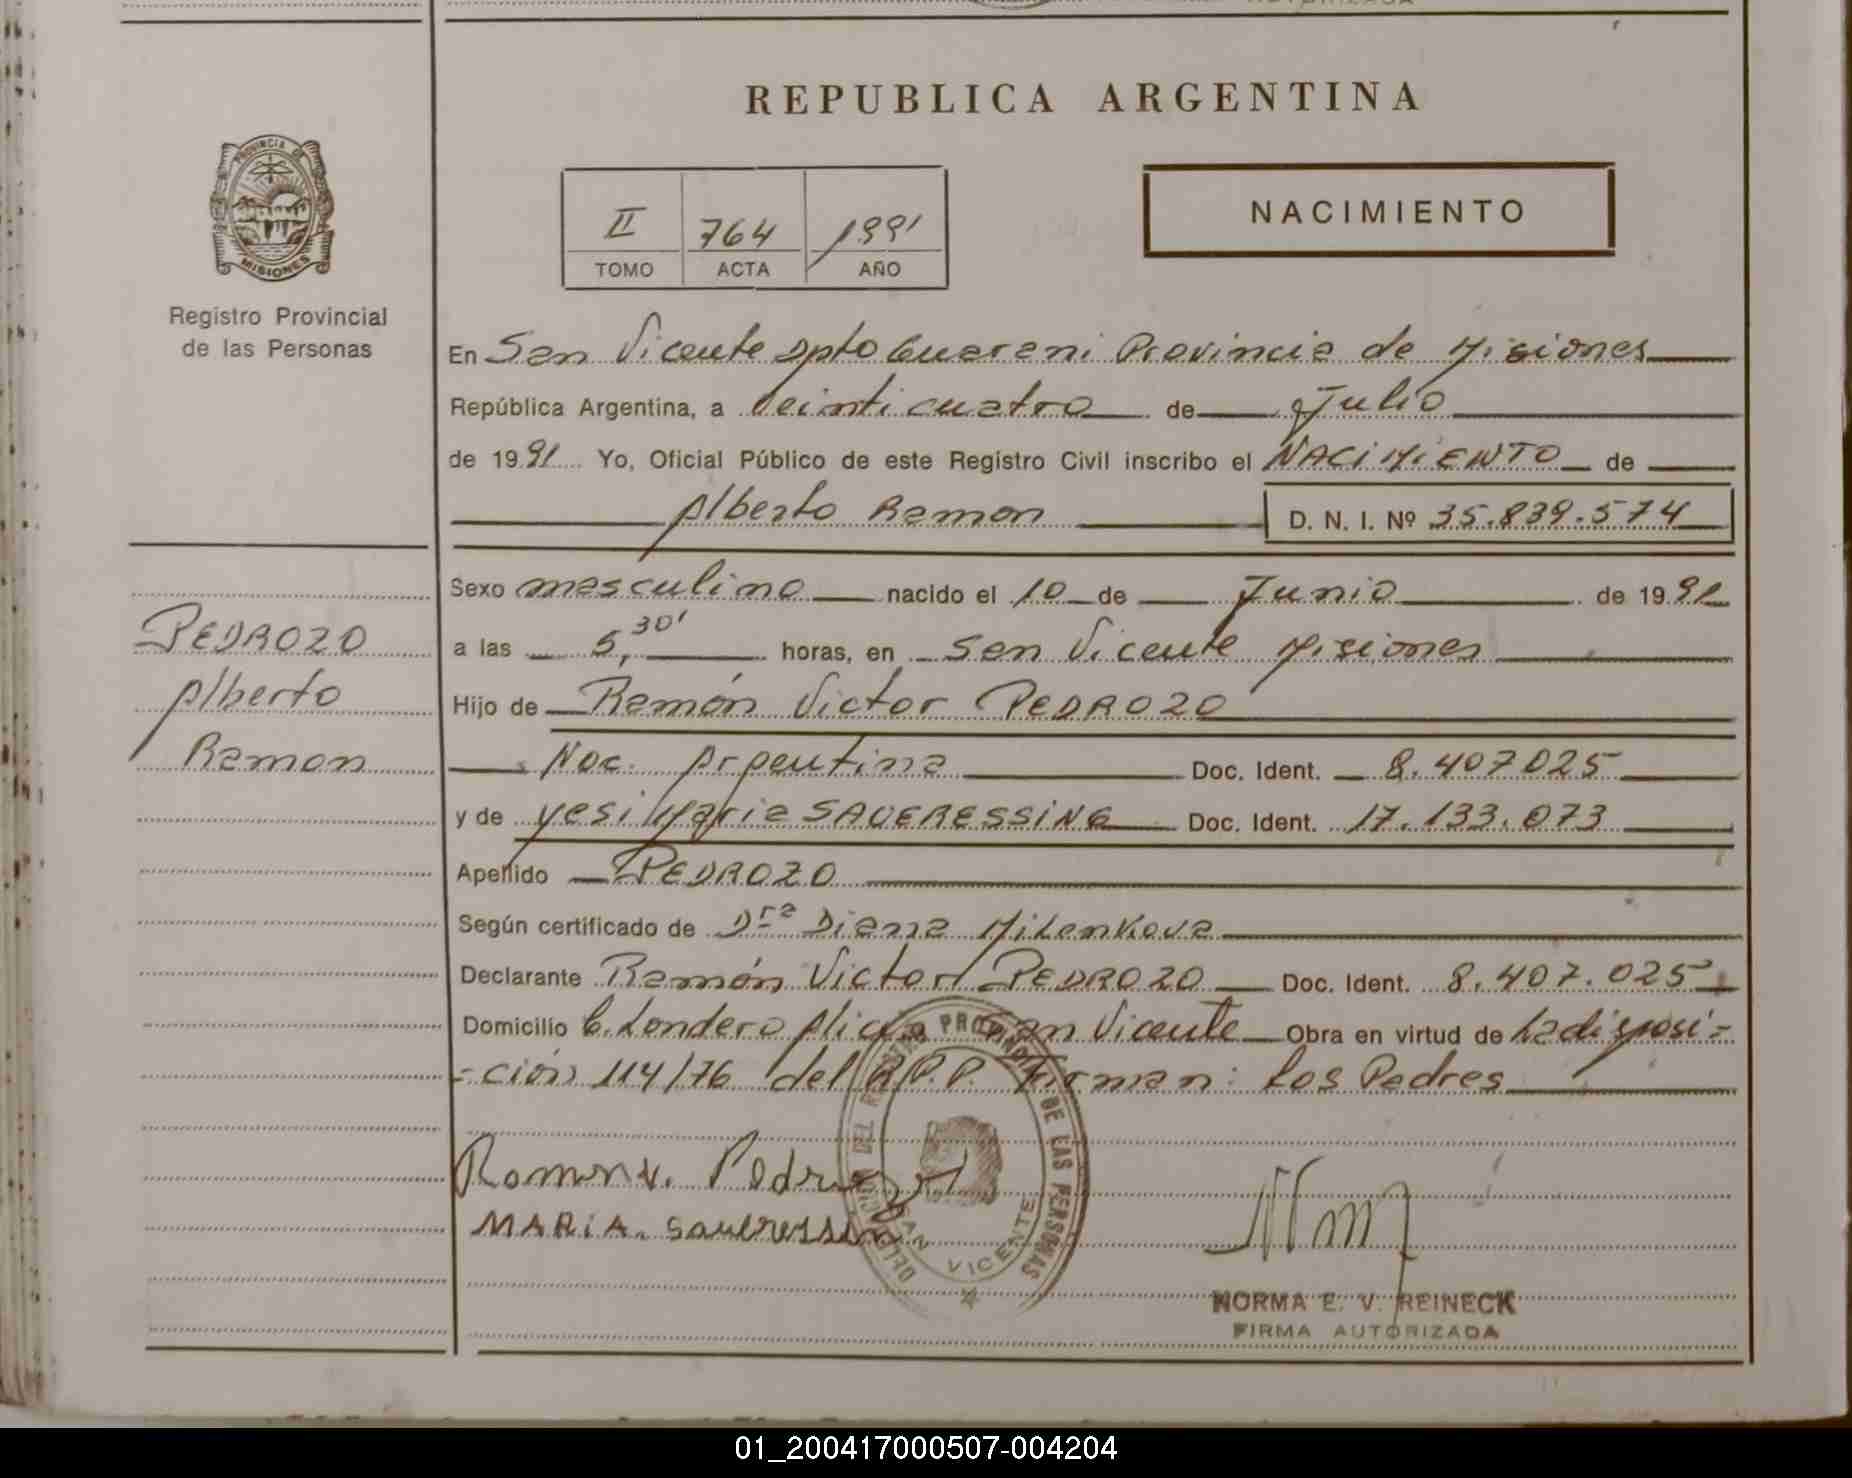 REPUBLICA ARGENTINA
PROVINCIA DE
MISIONES
Registro Provincial
de las Personas
II 764 1991
TOMO ACTA AÑO
NACIMIENTO
En San Vicente Dpto Guarani Provincia de Misiones
República Argentina, a Veinticuatro de Julio
de 1991 Yo, Oficial Público de este Registro Civil inscribo el NACIMIENTO de
Alberto Ramon D. N. I. Nº 35.839.574
Sexo masculino nacido el 10 de Junio de 1991
a las 5,30' horas, en San Vicente Misiones
Hijo de Ramón Victor PEDROZO
Nac. Argentina Doc. Ident. 8.407025
y de Yesi Maria SAUERESSING Doc. Ident. 17.133.073
Apellido PEDROZO
Según certificado de Dra Diana Milenkova
Declarante Ramón Victor PEDROZO Doc. Ident. 8.407.025
Domicilio C. Londero San Vicente Obra en virtud de La disposi=
=ción 114/76 del R.P.P. Firman: Los Padres
PEDROZO
Alberto
Ramon
Ramon V. Pedrozo
MARIA. Saueressin
DELEGACION DEL REGISTRO PROVINCIAL DE LAS PERSONAS
SAN VICENTE
NORMA E. V. REINECK
FIRMA AUTORIZADA
01_200417000507-004204